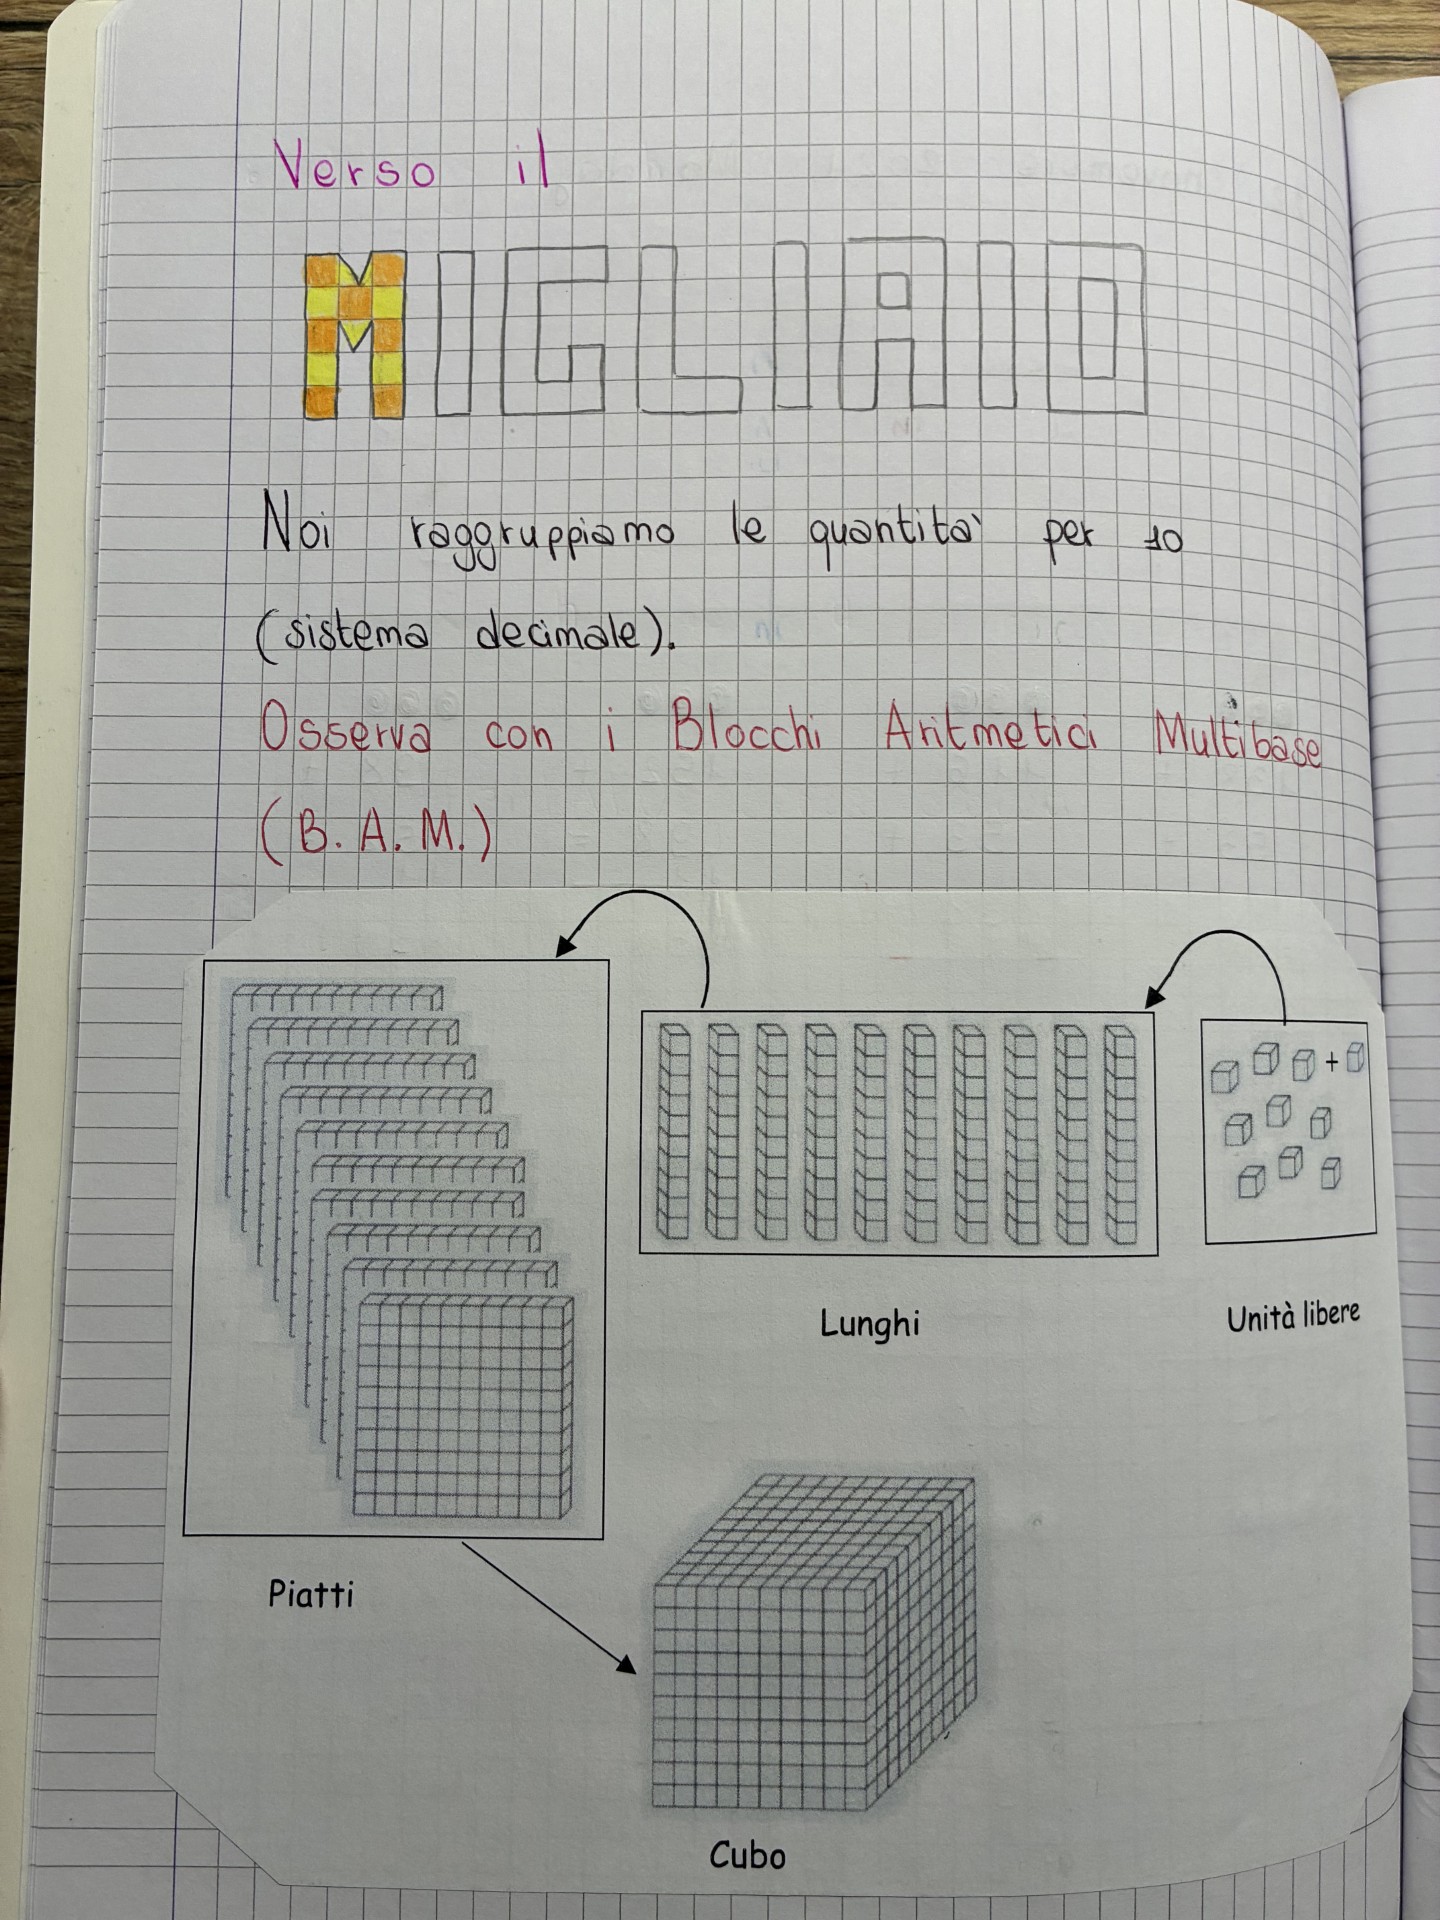 Verso il
MIGLIAIO
Noi raggruppiamo le quantità per 10
(sistema decimale).
Osserva con i Blocchi Aritmetici Multibase
(B. A. M.)
+
Lunghi
Unità libere
Piatti
Cubo